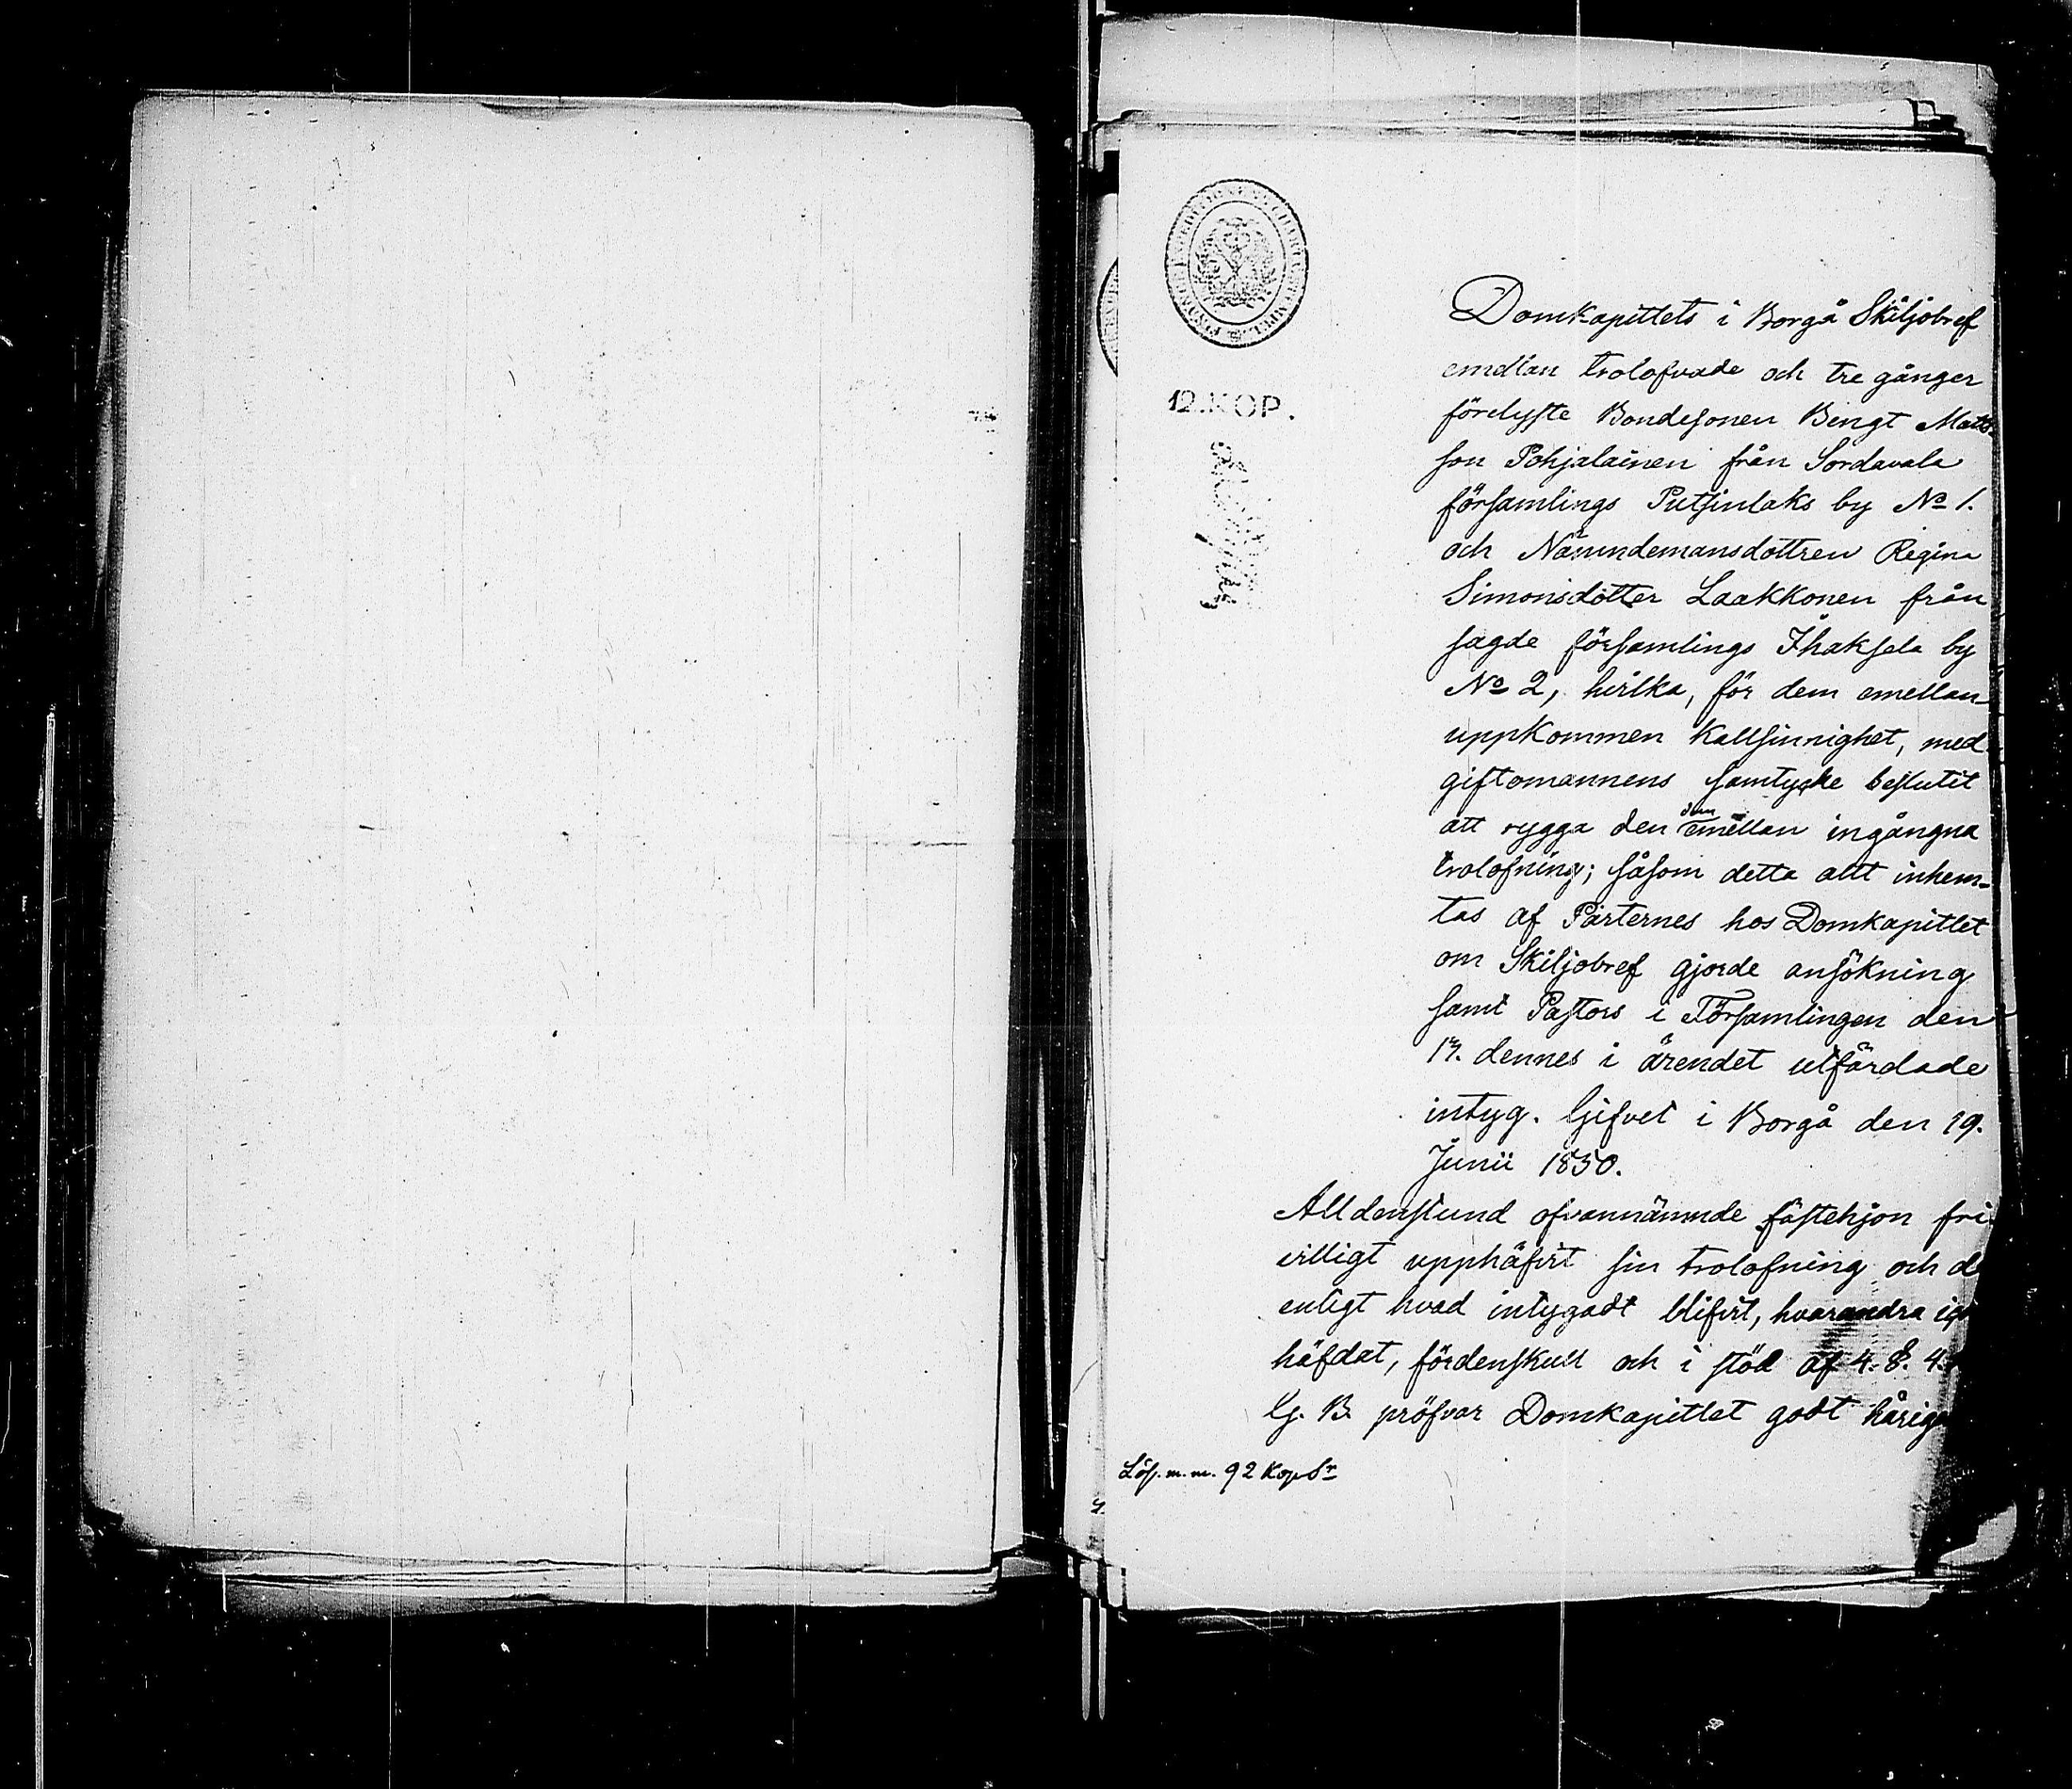 12.KOP.
Domkapittels i Borgå Skiljobref
emellan trolofvade och tre gånger
förelyste Bondesonen Bengt Matts-
son Pohjalainen från Sordavala
församlings Putsinlaks by No 1.
och Nämndemansdottren Regina
Simonsdotter Laakkonen från
sagde församlings Ihaksela by
No 2, hvilka, för dem emellan
uppkommen kallsinnighet, med
giftomannens samtycke beslutit
att rygga den dem emellan ingångna
trolofning; såsom detta allt inhem-
tas af Parternes hos Domkapitlet
om Skiljobref gjorde ansökning
samt Pastors i Församlingen den
dennes i ärendet utfärdade
intyg. Gifvet i Borgå den 19.
Junii 1850.
Alldenstund ofvannämnde fästehjon fri-
villigt upphäfvit sin trolofning och
enligt hvad intygadt blifvit, hvarandra
häfdat, fördenskull och i stöd af 4. §. 4.
G. B. pröfvar Domkapitlet godt
Lös. m.m. 92 Kop. Sr